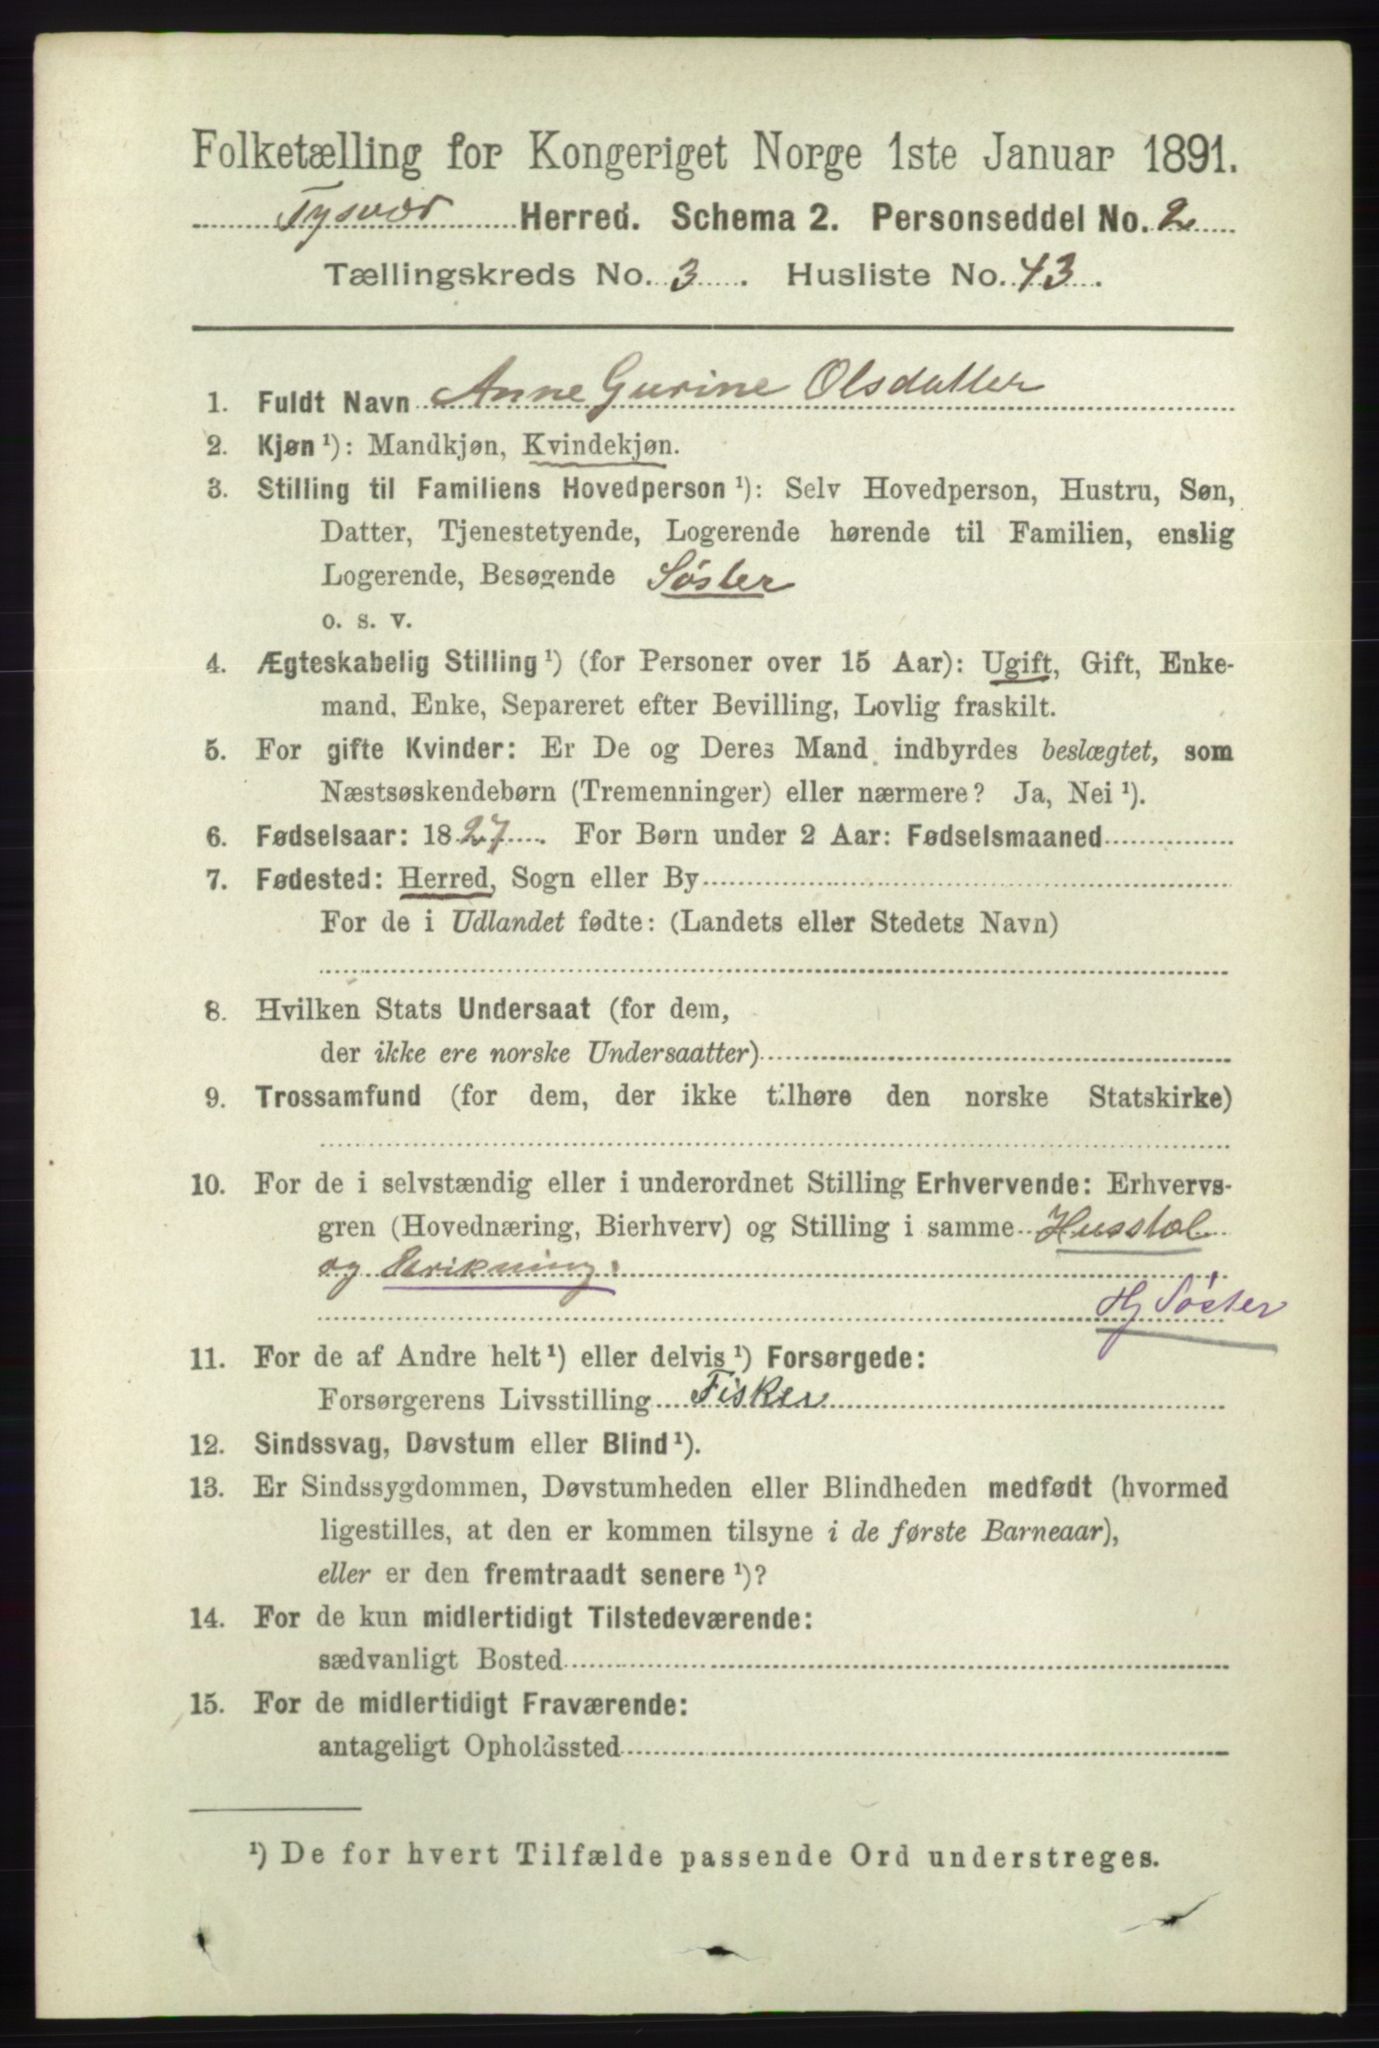 Folketælling for Kongeriget Norge 1ste Januar 1891.
Tysvær Herred. Schema 2. Personseddel No. 2
Tællingskreds No. 3. Husliste No. 43.
1. Fuldt Navn Anne Gurine Olsdatter
2. Kjøn ¹): Mandkjøn, Kvindekjøn.
3. Stilling til Familiens Hovedperson ¹): Selv Hovedperson, Hustru, Søn,
Datter, Tjenestetyende, Logerende hørende til Familien, enslig
Logerende, Besøgende Søster
o. s. v.
4. Ægteskabelig Stilling ¹) (for Personer over 15 Aar): Ugift, Gift, Enke-
mand, Enke, Separeret efter Bevilling, Lovlig fraskilt.
5. For gifte Kvinder: Er De og Deres Mand indbyrdes beslægtet, som
Næstsøskendebørn (Tremenninger) eller nærmere? Ja, Nei ¹).
6. Fødselsaar: 1827. For Børn under 2 Aar: Fødselsmaaned
7. Fødested: Herred, Sogn eller By
For de i Udlandet fødte: (Landets eller Stedets Navn)
8. Hvilken Stats Undersaat (for dem,
der ikke ere norske Undersaatter)
9. Trossamfund (for dem, der ikke tilhøre den norske Statskirke)
10. For de i selvstændig eller i underordnet Stilling Erhvervende: Erhvervs-
gren (Hovednæring, Bierhverv) og Stilling i samme Husstel
og
Hj Søster
11. For de af Andre helt ¹) eller delvis ¹) Forsørgede:
Forsørgerens Livsstilling Fisker
12. Sindssvag, Døvstum eller Blind ¹).
13. Er Sindssygdommen, Døvstumheden eller Blindheden medfødt (hvormed
ligestilles, at den er kommen tilsyne i de første Barneaar),
eller er den fremtraadt senere ¹)?
14. For de kun midlertidigt Tilstedeværende:
sædvanligt Bosted
15. For de midlertidigt Fraværende:
antageligt Opholdssted
¹) De for hvert Tilfælde passende Ord understreges.